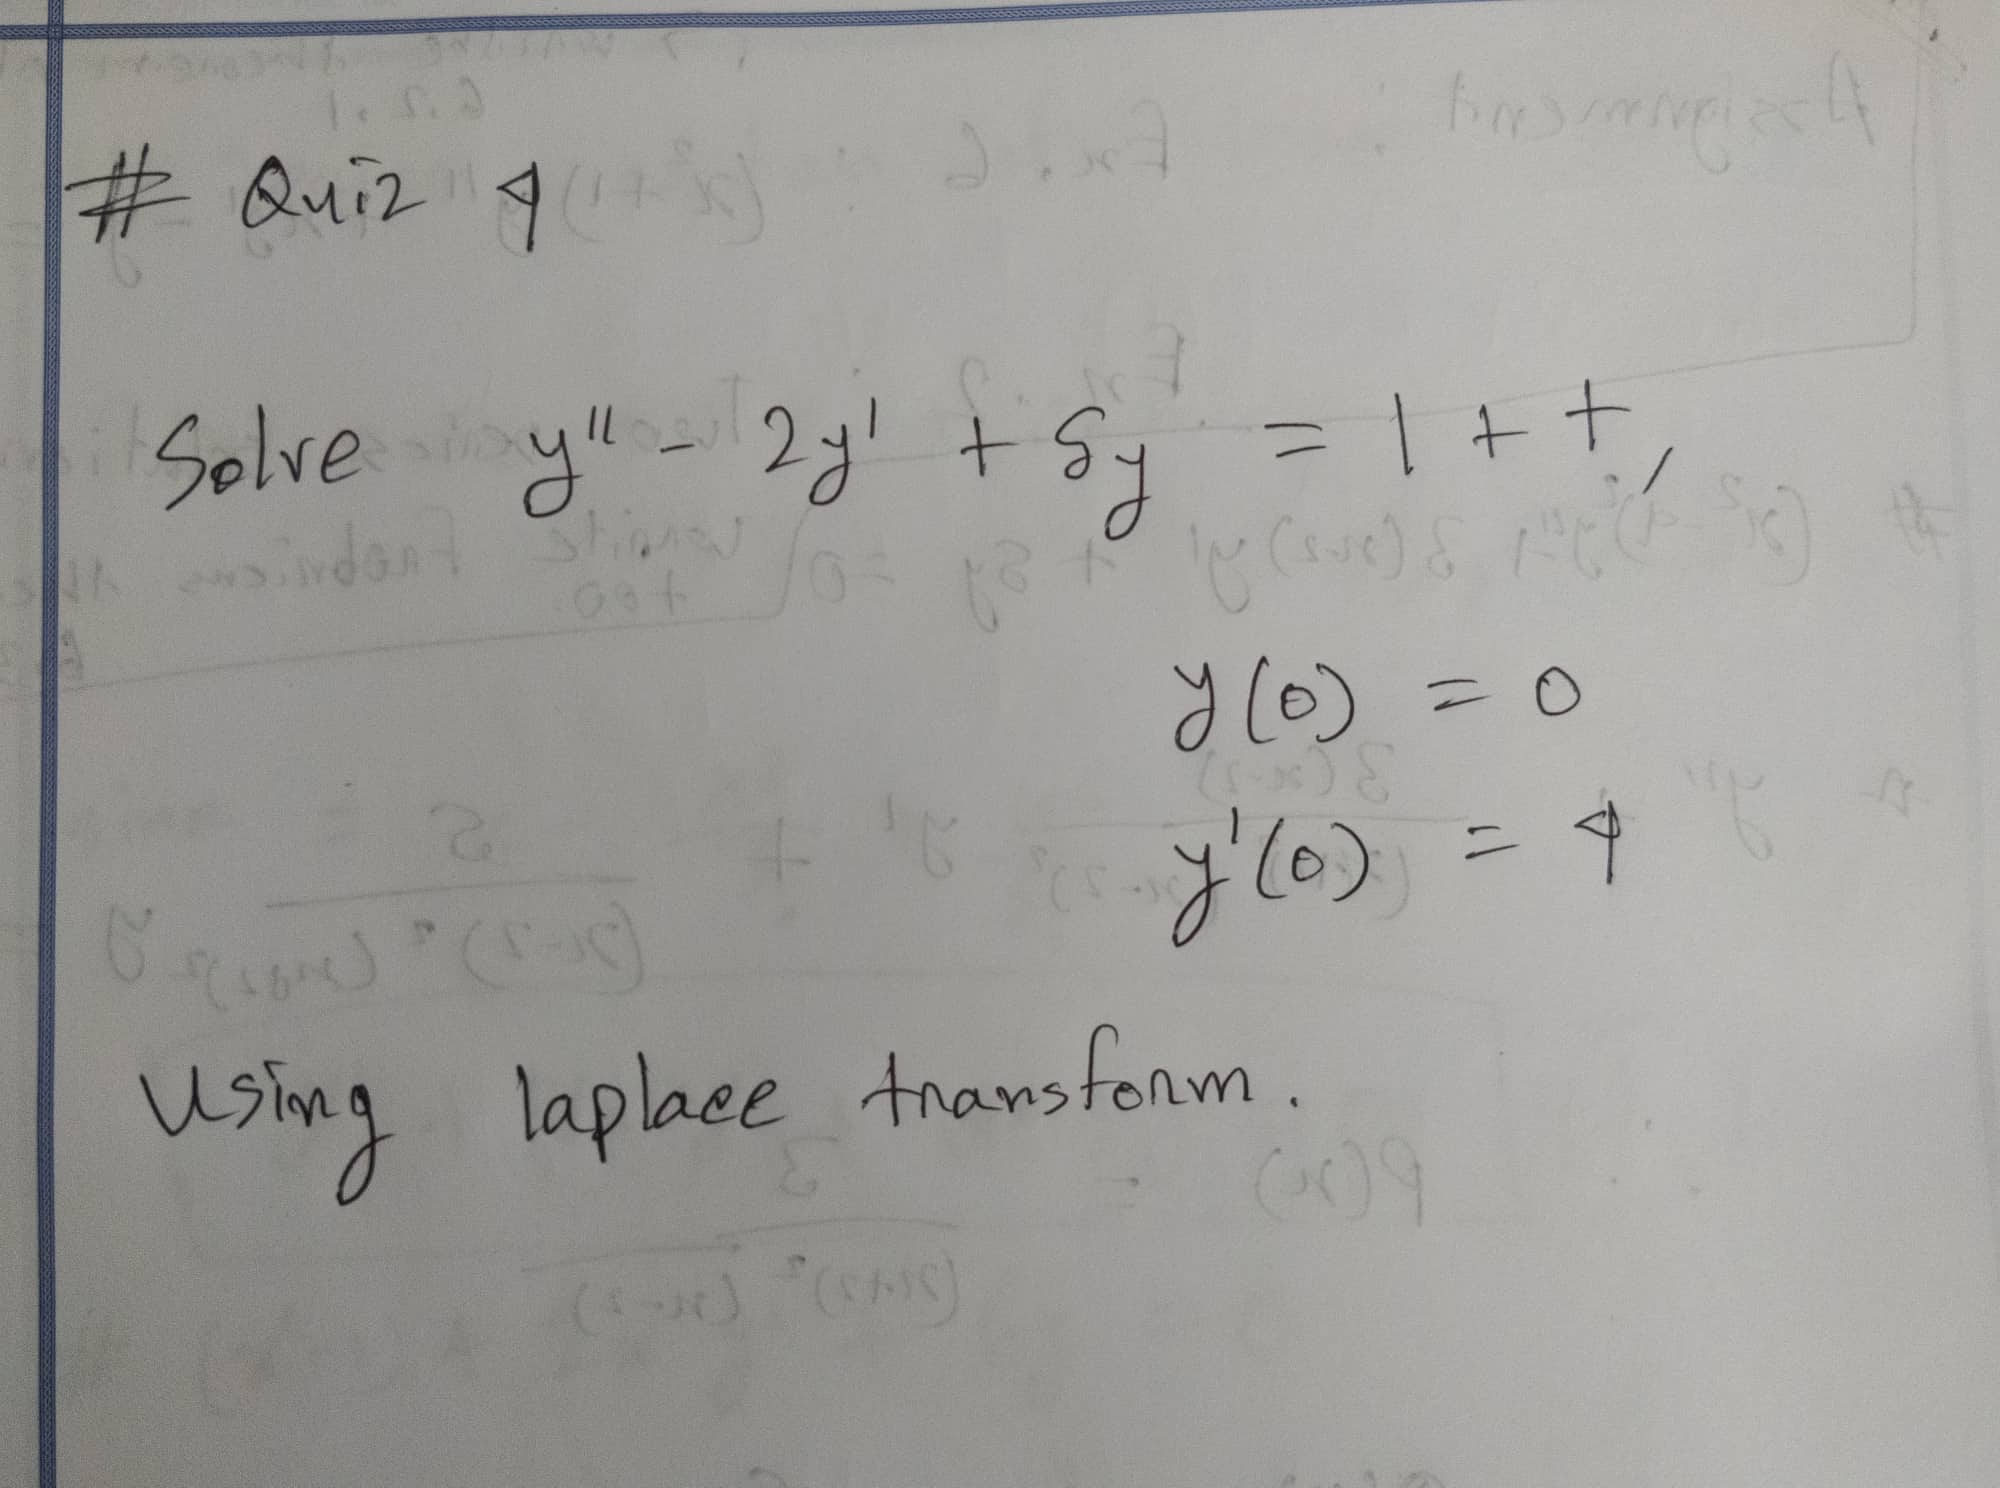 # Quiz 4
Solve y'' - 2y' + 5y = 1 + t,
y(0) = 0
y'(0) = 4
Using laplace transform.